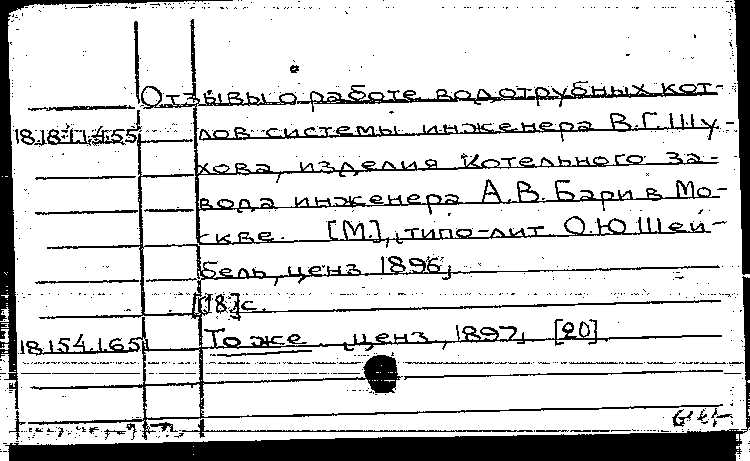 Отзывы о работе водотрубных кот-
18.181.1.455 лов системы инженера В.Г. Шу-
хова, изделия Котельного за-
вода инженера А.В. Бари в Мо-
скве. [М.], типо-лит О.Ю. Шей-
бель, ценз. 1896,
[18] с.
18.154.1.65 То же ценз, 1897, [20].